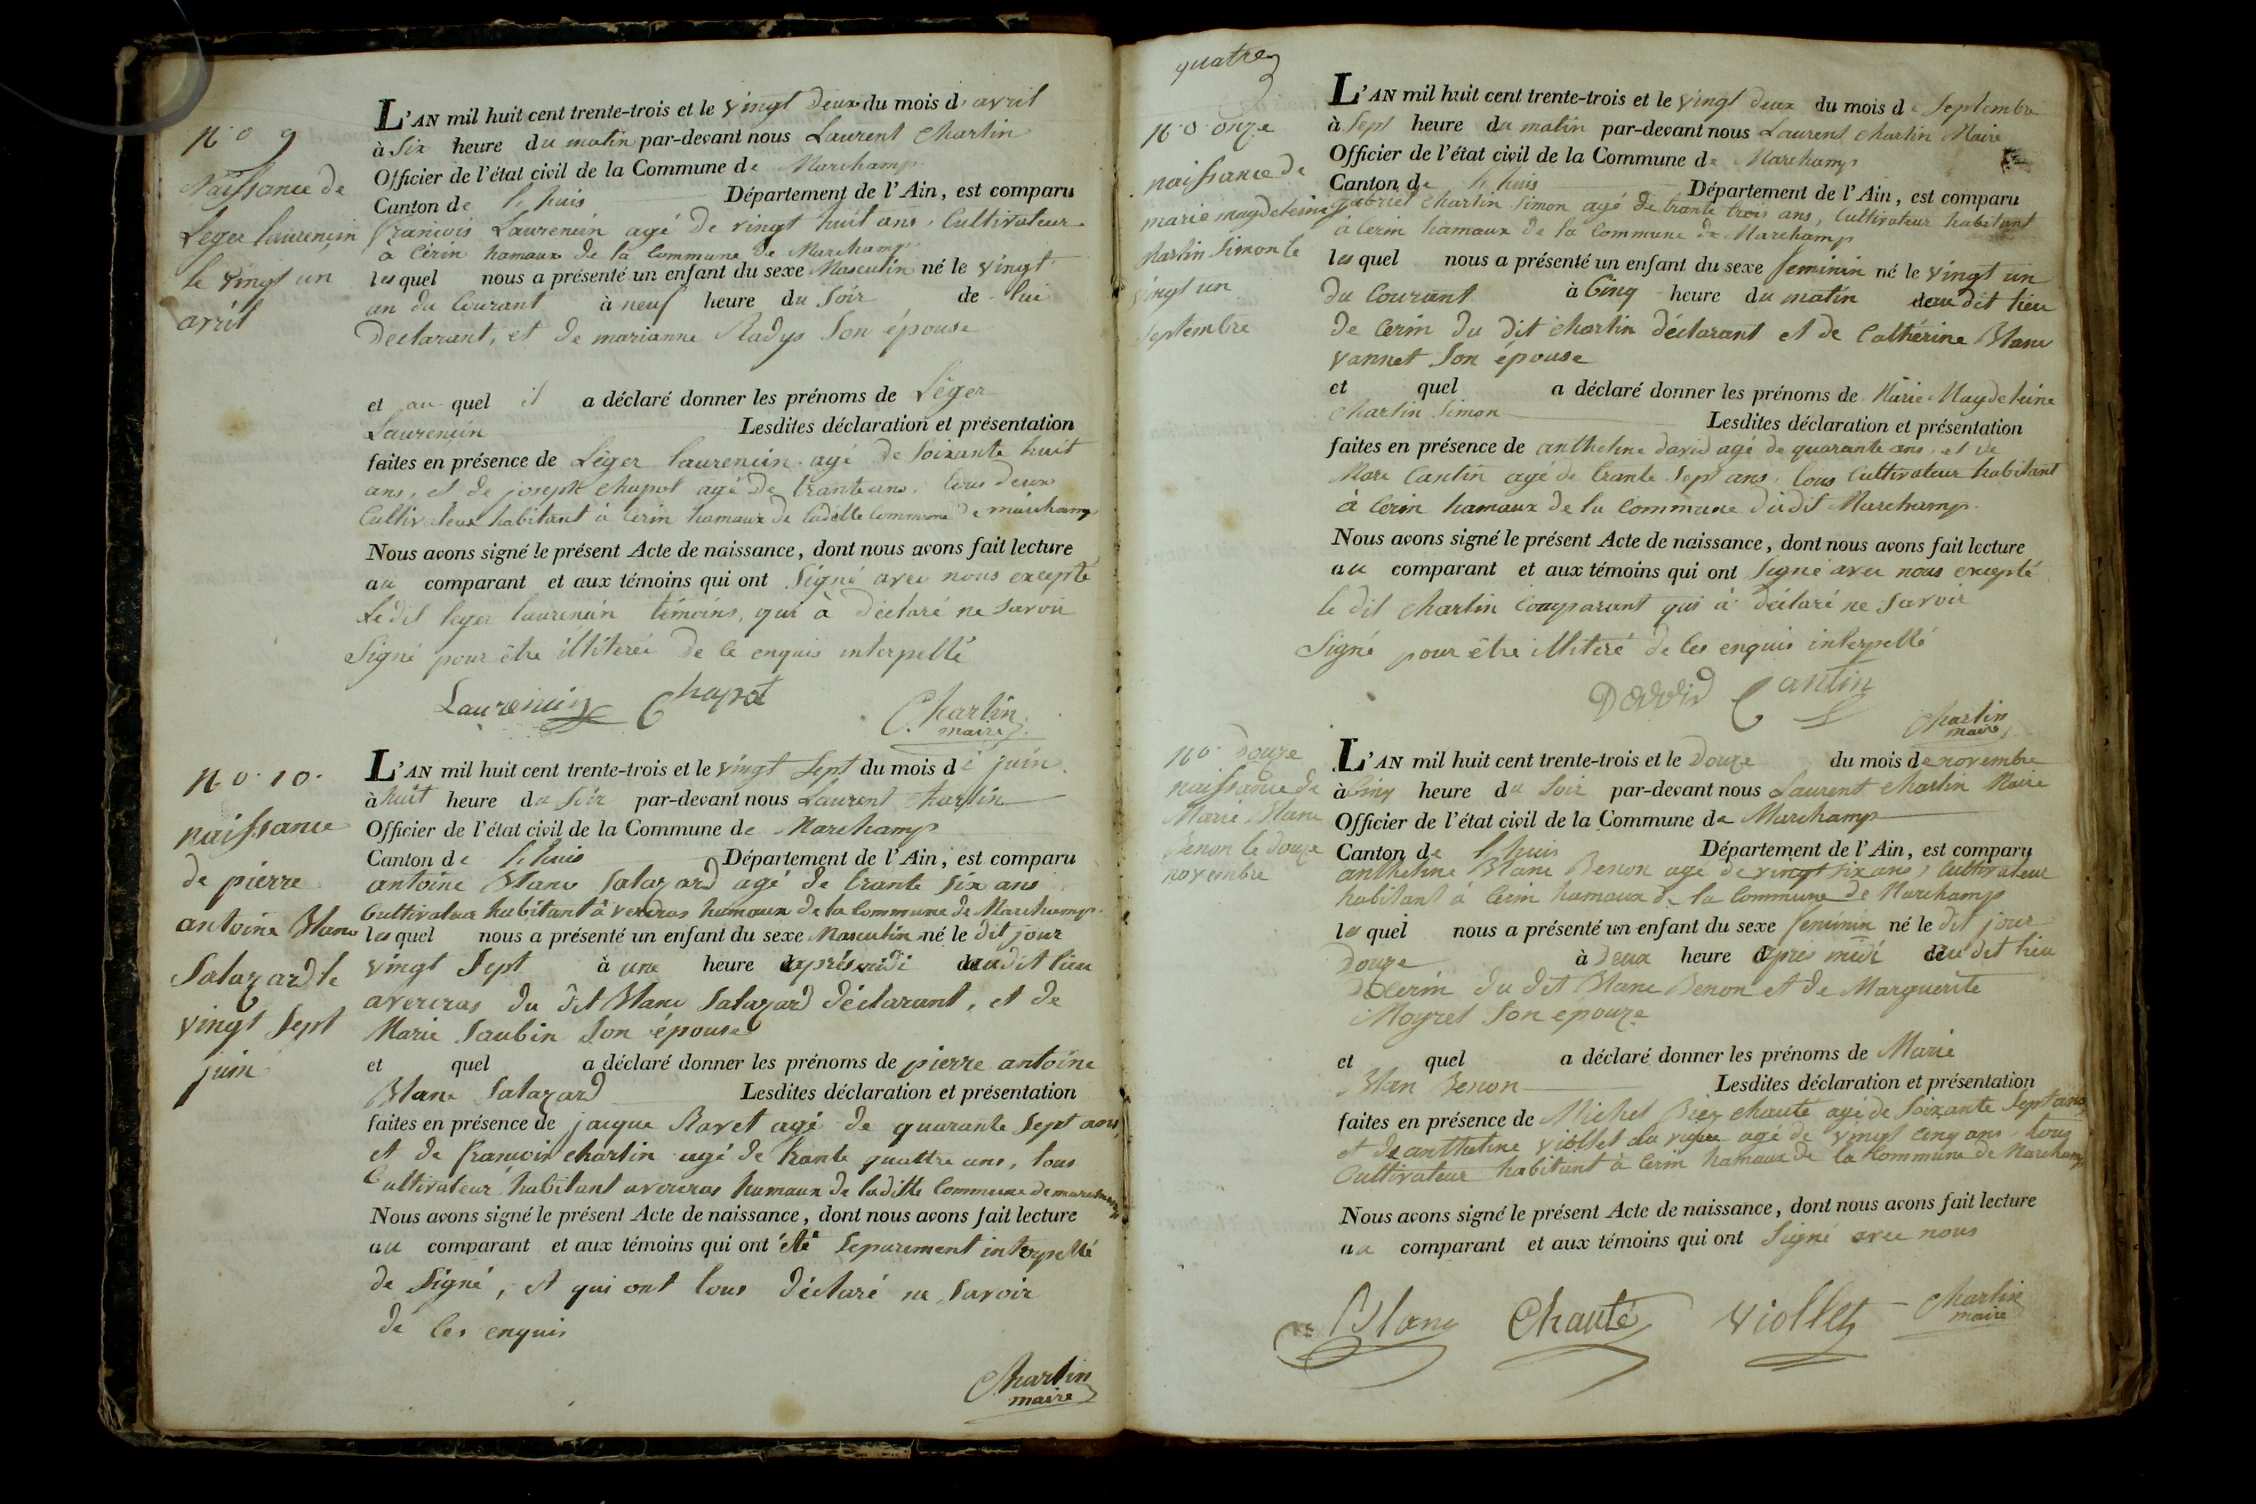 n.o 9
Naissance de
Leger laurencin
le vingt un
avril
L'AN mil huit cent trente-trois et le vingt deux du mois d'avril
à six heure du matin par-devant nous Laurent Charlin
Officier de l'état civil de la Commune de Marchamp
Canton de lhuis Département de l'Ain, est comparu
francois Laurencin agé de vingt huit ans, Cultivateur
a Cérin hamaux de la Commune de Marchamp
lesquel nous a présenté un enfant du sexe Masculin né le vingt
un du Courant à neuf heure du soir de lui
Declarant, et de marianne Radys son épouse
et au quel il a déclaré donner les prénoms de Léger
Laurencin Lesdites déclaration et présentation
faites en présence de Léger laurencin agé de soixante huit
ans, et de joseph chapot agé de trante ans, tous deux
Cultivateur habitant à Cerin hamaux de ladette Commune de marchamp
Nous avons signé le présent Acte de naissance, dont nous avons fait lecture
au comparant et aux témoins qui ont signé avec nous excepté
Le dit leger laurencin témoins, qui à déclaré ne savoir
signé pour être illiterée de ce enquis interpellé
Laurencin Chapot
Charlin
maire
n.o 10.
naissance
de pierre
antoine Blanc
Salazard le
vingt sept
juin
L'AN mil huit cent trente-trois et le vingt sept du mois de juin
à huit heure du soir par-devant nous Laurent Charlin
Officier de l'état civil de la Commune de Marchamp
Canton de lhuis Département de l'Ain, est comparu
antoine Blanc Salazard agé de trante six ans
Cultivateur habitant à vercras hamaux de la Commune de Marchamp
lesquel nous a présenté un enfant du sexe Masculin né le dit jour
vingt sept à une heure après midi audit lieu
avercras du dit Blanc Salazard déclarant, et de
Marie Saubin son épouse
et quel a déclaré donner les prénoms de pierre antoine
Blanc Salazard Lesdites déclaration et présentation
faites en présence de jacque Ravet agé de quarante sept ans,
et de francois charlin agé de trante quattre ans, tous
Cultivateur habitant avercras hamaux de laditte Commune de marchamp
Nous avons signé le présent Acte de naissance, dont nous avons fait lecture
au comparant et aux témoins qui ont été separement interpellé
de signé, et qui ont tous déclaré ne savoir
de ces enquis
Charlin
maire
quatre
n.o onze
naissance de
marie magdeleine
Charlin Simon le
vingt un
septembre
L'AN mil huit cent trente-trois et le vingt deux du mois de septembre
à sept heure du matin par-devant nous Laurent charlin Maire
Officier de l'état civil de la Commune de Marchamp
Canton de lhuis Département de l'Ain, est comparu
gabriel Charlin Simon agé de trante trois ans, Cultivateur habitant
à Cerin hamaux de la Commune de Marchamp
lesquel nous a présenté un enfant du sexe feminin né le vingt un
du Courant à Cinq heure du matin au dit lieu
de Cerin du dit Charlin déclarant et de Cathérine Blanc
vannet son épouse
et quel a déclaré donner les prénoms de Marie Magdeleine
Charlin Simon Lesdites déclaration et présentation
faites en présence de anthelme david agé de quarante ans, et de
Marc Cantin agé de trante sept ans, tous Cultivateur habitant
à Cerin hamaux de la Commune dudit Marchamp.
Nous avons signé le présent Acte de naissance, dont nous avons fait lecture
au comparant et aux témoins qui ont signé avec nous excepté
le dit Charlin Comparant qui à déclaré ne savoir
signé pour être illiteré de ces enquis interpellé
David Cantin
Charlin
maire
n.o Douze
naissance de
Marie Blanc
Benon le douze
novembre
L'AN mil huit cent trente-trois et le Douze du mois de novembre
à Cinq heure du soir par-devant nous Laurent Charlin Maire
Officier de l'état civil de la Commune de Marchamp
Canton de lhuis Département de l'Ain, est comparu
anthelme Blanc Benon agé de vingt six ans, Cultivateur
habitant à Cerin hamaux de la Commune de Marchamp
lesquel nous a présenté un enfant du sexe feminin né le dit jour
Douze à deux heure après midi au dit lieu
de Cerin du dit Blanc Benon et de Marguerite
Moyret son epouze
et quel a déclaré donner les prénoms de Marie
Blan Benon Lesdites déclaration et présentation
faites en présence de Michel chauté agé de soixante sept ans,
et de anthelme viollet agé de vingt cinq ans, tous
Cultivateur habitant à Cerin hamaux de la Commune de Marchamp
Nous avons signé le présent Acte de naissance, dont nous avons fait lecture
au comparant et aux témoins qui ont signé avec nous
Blanc Chauté viollet Charlin
maire